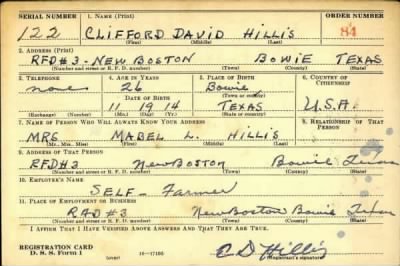 SERIAL NUMBER 1. NAME (Print) ORDER NUMBER
122 CLIFFORD DAVID HILLIS 84
(First) (Middle) (Last)
2. ADDRESS (Print)
RFD#3-NEW BOSTON BOWIE TEXAS
(Number and street or R. F. D. number) (Town) (County) (State)
3. TELEPHONE 4. AGE IN YEARS 5. PLACE OF BIRTH 6. COUNTRY OF CITIZENSHIP
none 26 Bowie
DATE OF BIRTH (Town or county)
11 19 14 TEXAS U.S.A.
(Exchange) (Number) (Mo.) (Day) (Yr.) (State or country)
7. NAME OF PERSON WHO WILL ALWAYS KNOW YOUR ADDRESS 8. RELATIONSHIP OF THAT PERSON
MRS MABEL L. HILLIS
(Mr., Mrs., Miss) (First) (Middle) (Last)
9. ADDRESS OF THAT PERSON
RFD#3 New Boston Bowie Texas
(Number and street or R. F. D. number) (Town) (County) (State)
10. EMPLOYER'S NAME
SELF - Farmer
11. PLACE OF EMPLOYMENT OR BUSINESS
RFD #3 New Boston Bowie Texas
(Number and street or R. F. D. number) (Town) (County) (State)
I AFFIRM THAT I HAVE VERIFIED ABOVE ANSWERS AND THAT THEY ARE TRUE.
REGISTRATION CARD
D. S. S. Form 1 (over) 16-17105 C D Hillis
(Registrant's signature)